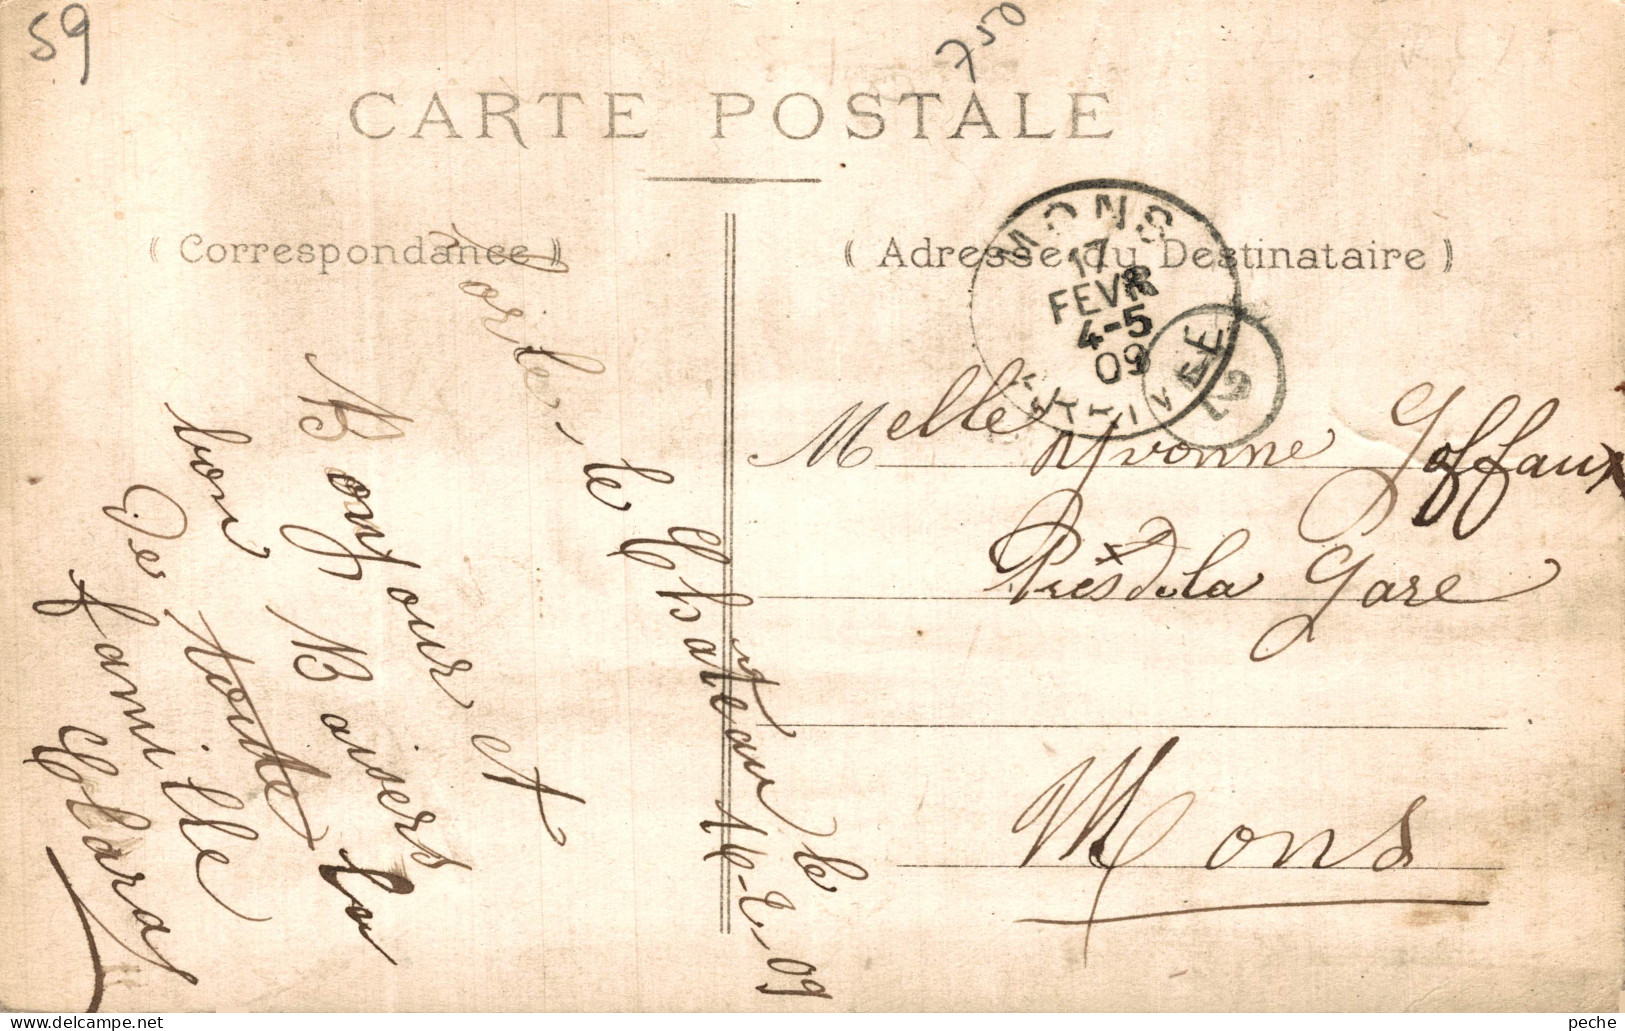 59
750
CARTE POSTALE
( Correspondance )
( Adresse du Destinataire )
MONS
17
FEVR
4-5
09
ARRIVEE
12
Morlè, le Château le
16-2-09
Bonjour et
Baisers
bon
De toute la
famille
Clara
Melle Yvonne Goffaux
Près de la Gare
Mons
peche